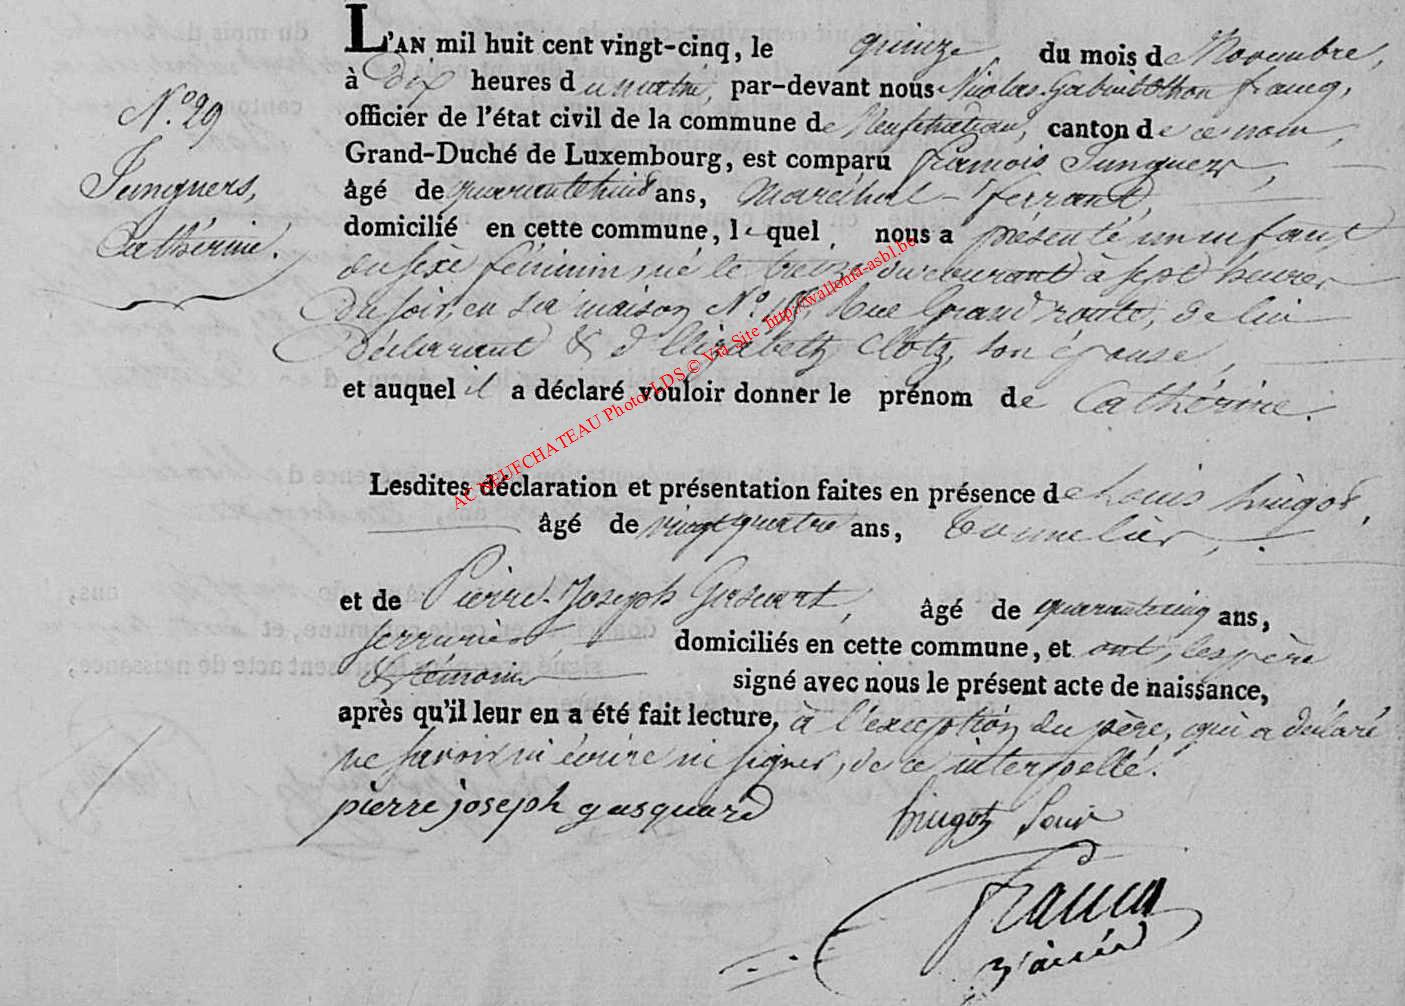 L'AN mil huit cent vingt-cinq, le quinze du mois de Novembre,
à Dix heures du matin, par-devant nous Nicolas Gabriel Othon Francq,
officier de l'état civil de la commune de Neufchateau, canton de ce nom,
Grand-Duché de Luxembourg, est comparu François Jungers,
âgé de quarante huit ans, Maréchal-ferrant,
domicilié en cette commune, lequel nous a présenté un enfant
du sexe féminin né le treize du courant à sept heures
du soir, en sa maison N.º Rue Grand route, de lui
Déclarant & d'Elizabeth Clotz, son épouse,
et auquel il a déclaré vouloir donner le prénom de Cathérine.
N.º 29
Jungers,
Cathérine.
Lesdites déclaration et présentation faites en présence de Louis hugot,
âgé de vingt quatre ans, tonnelier,
et de Pierre-Joseph âgé de quarante cinq ans,
serrurier domiciliés en cette commune, et ont, les père
& témoins signé avec nous le présent acte de naissance,
après qu'il leur en a été fait lecture, à l'exception du père, qui a déclaré
ne savoir ni écrire ni signer, de ce interpellé.
pierre joseph gasquard
hugot Louis
Francq
AC NEUFCHATEAU Photo LDS © Via Site http://wallonia-asbl.be